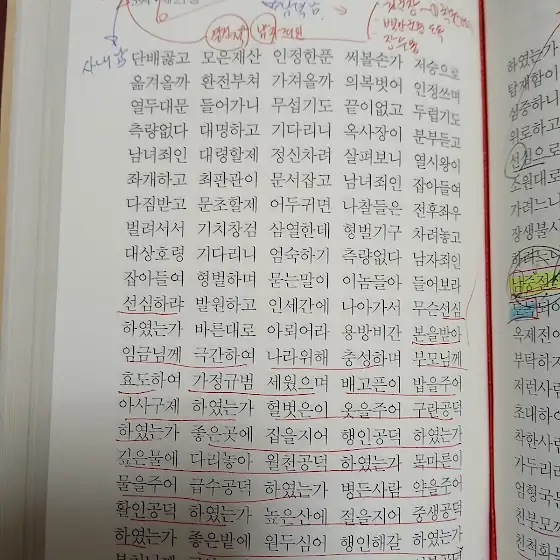 단배곯고 모은재산 인정한푼 써볼손가 저승으로
옮겨올까 환전부쳐 가져올까 의복벗어 인정쓰며
열두대문 들어가니 무섭기도 끝이없고 두렵기도
측량없다 대명하고 기다리니 옥사장이 분부듣고
남녀죄인 대령할제 정신차려 살펴보니 열시왕이
좌개하고 최판관이 문서잡고 남녀죄인 잡아들여
다짐받고 문초할제 어두귀면 나찰들은 전후좌우
벌려서서 기치창검 삼열한데 형벌기구 차려놓고
대상호령 기다리니 엄숙하기 측량없다 남자죄인
잡아들여 형벌하며 묻는말이 이놈들아 들어보라
선심하랴 발원하고 인세간에 나아가서 무슨선심
하였는가 바른대로 아뢰어라 용방비간 본을받아
임금님께 극간하여 나라위해 충성하며 부모님께
효도하여 가정규범 세웠으며 배고픈이 밥을주어
아사구제 하였는가 헐벗은이 옷을주어 구란공덕
하였는가 좋은곳에 집을지어 행인공덕 하였는가
깊은물에 다리놓아 월천공덕 하였는가 목마른이
물을주어 급수공덕 하였는가 병든사람 약을주어
활인공덕 하였는가 높은산에 절을지어 중생공덕
하였는가 좋은밭에 원두심어 행인해갈 하였는가
하였는가
탑재함이
심중하니
위로하고
선심으로
소원대로
가려느니
장생불사
옥제진이
부탁하지
지런사람
초대하여
착한사람
가두리라
엄형국문
친부모